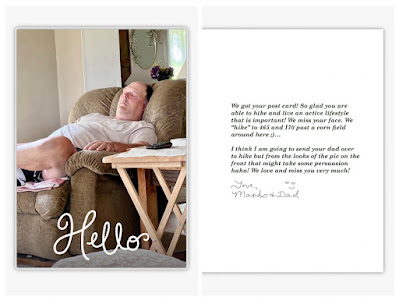 Hello
We got your post card! So glad you are
able to hike and live an active lifestyle
that is important! We miss your face. We
"hike" to 465 and I70 past a corn field
around here ;)...
I think I am going to send your dad over
to hike but from the looks of the pic on the
front that might take some persuasion
haha! We love and miss you very much!
Love,
Mando & Dad